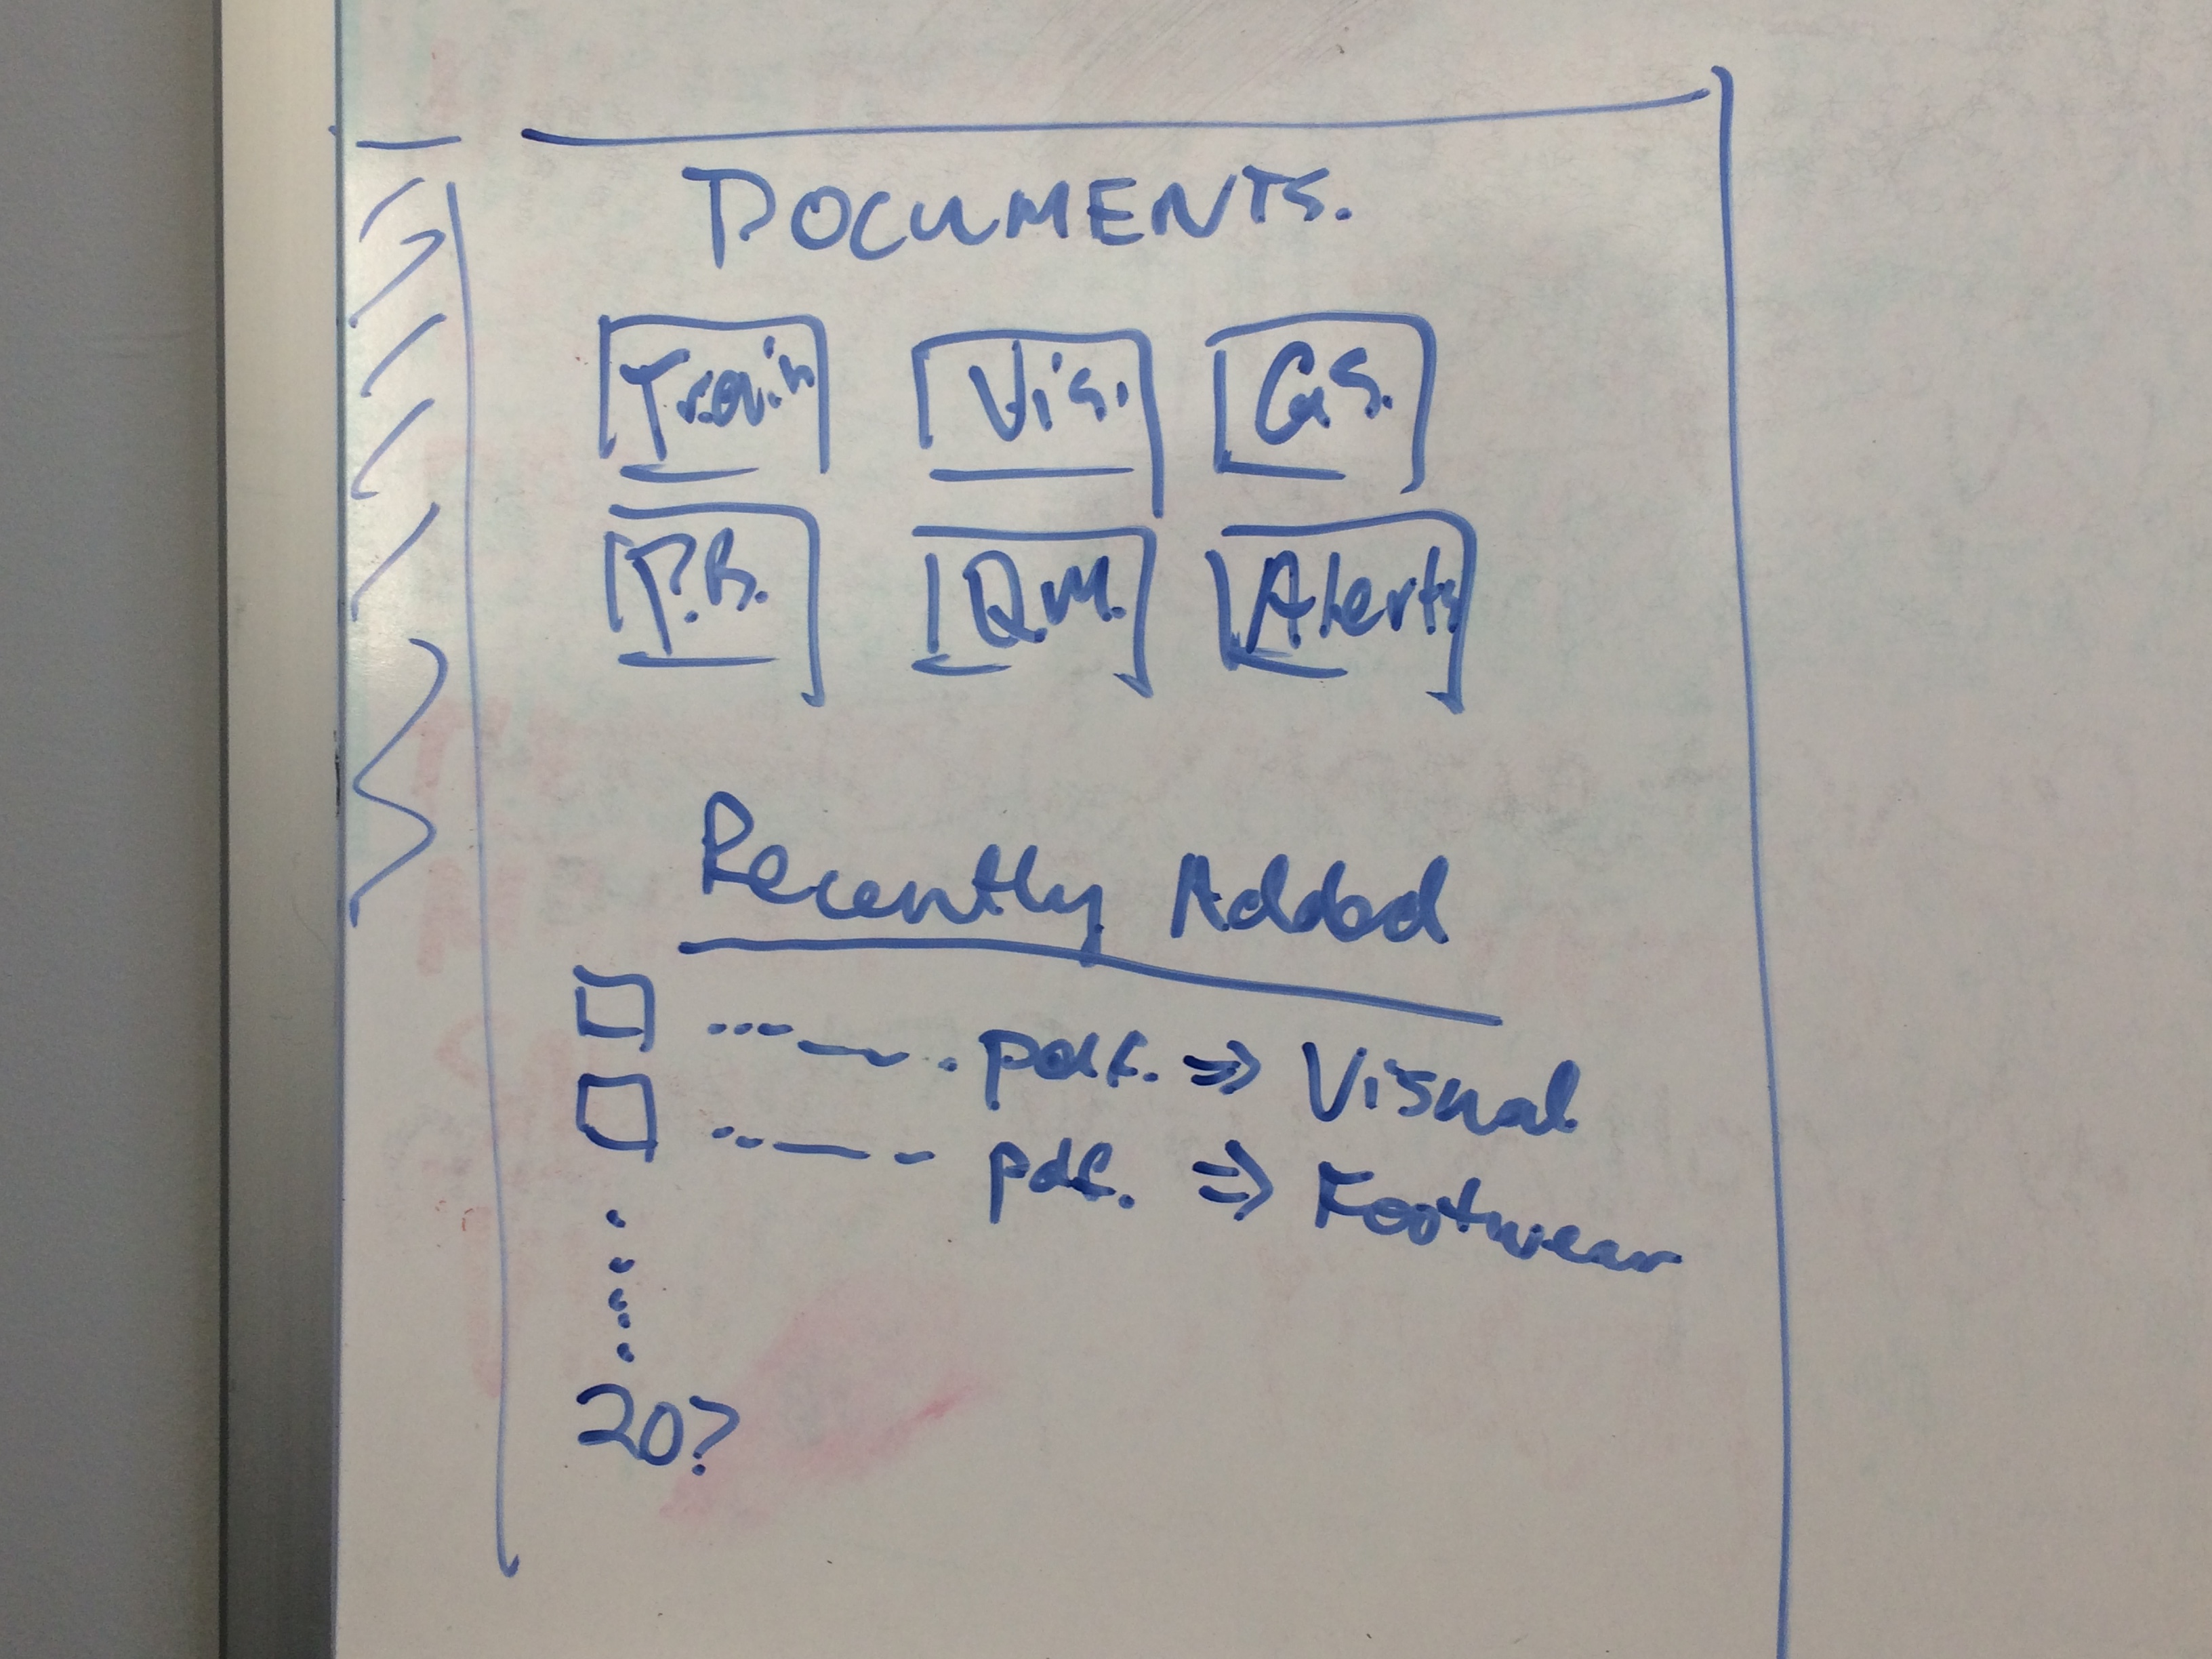 DOCUMENTS.
Train Vis. G.S.
P.B. Q.M. Alerts
Recently Added
. pdf. => Visual
pdf. => Footwear
20?